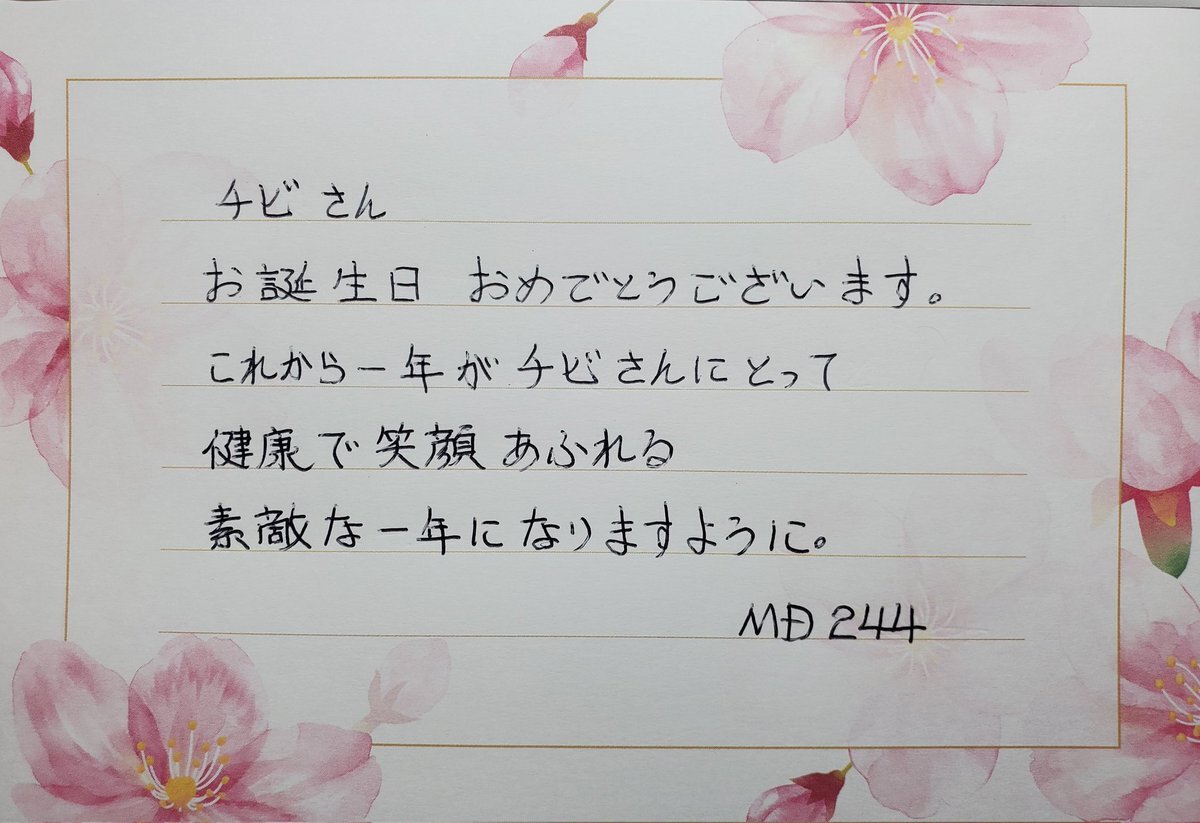 チビさん
お誕生日 おめでとうございます。
これから一年がチビさんにとって
健康で笑顔あふれる
素敵な一年になりますように。
MÐ 244